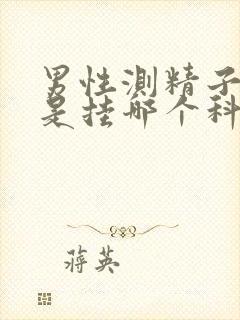 男性测精子
是挂哪个科
蒋英